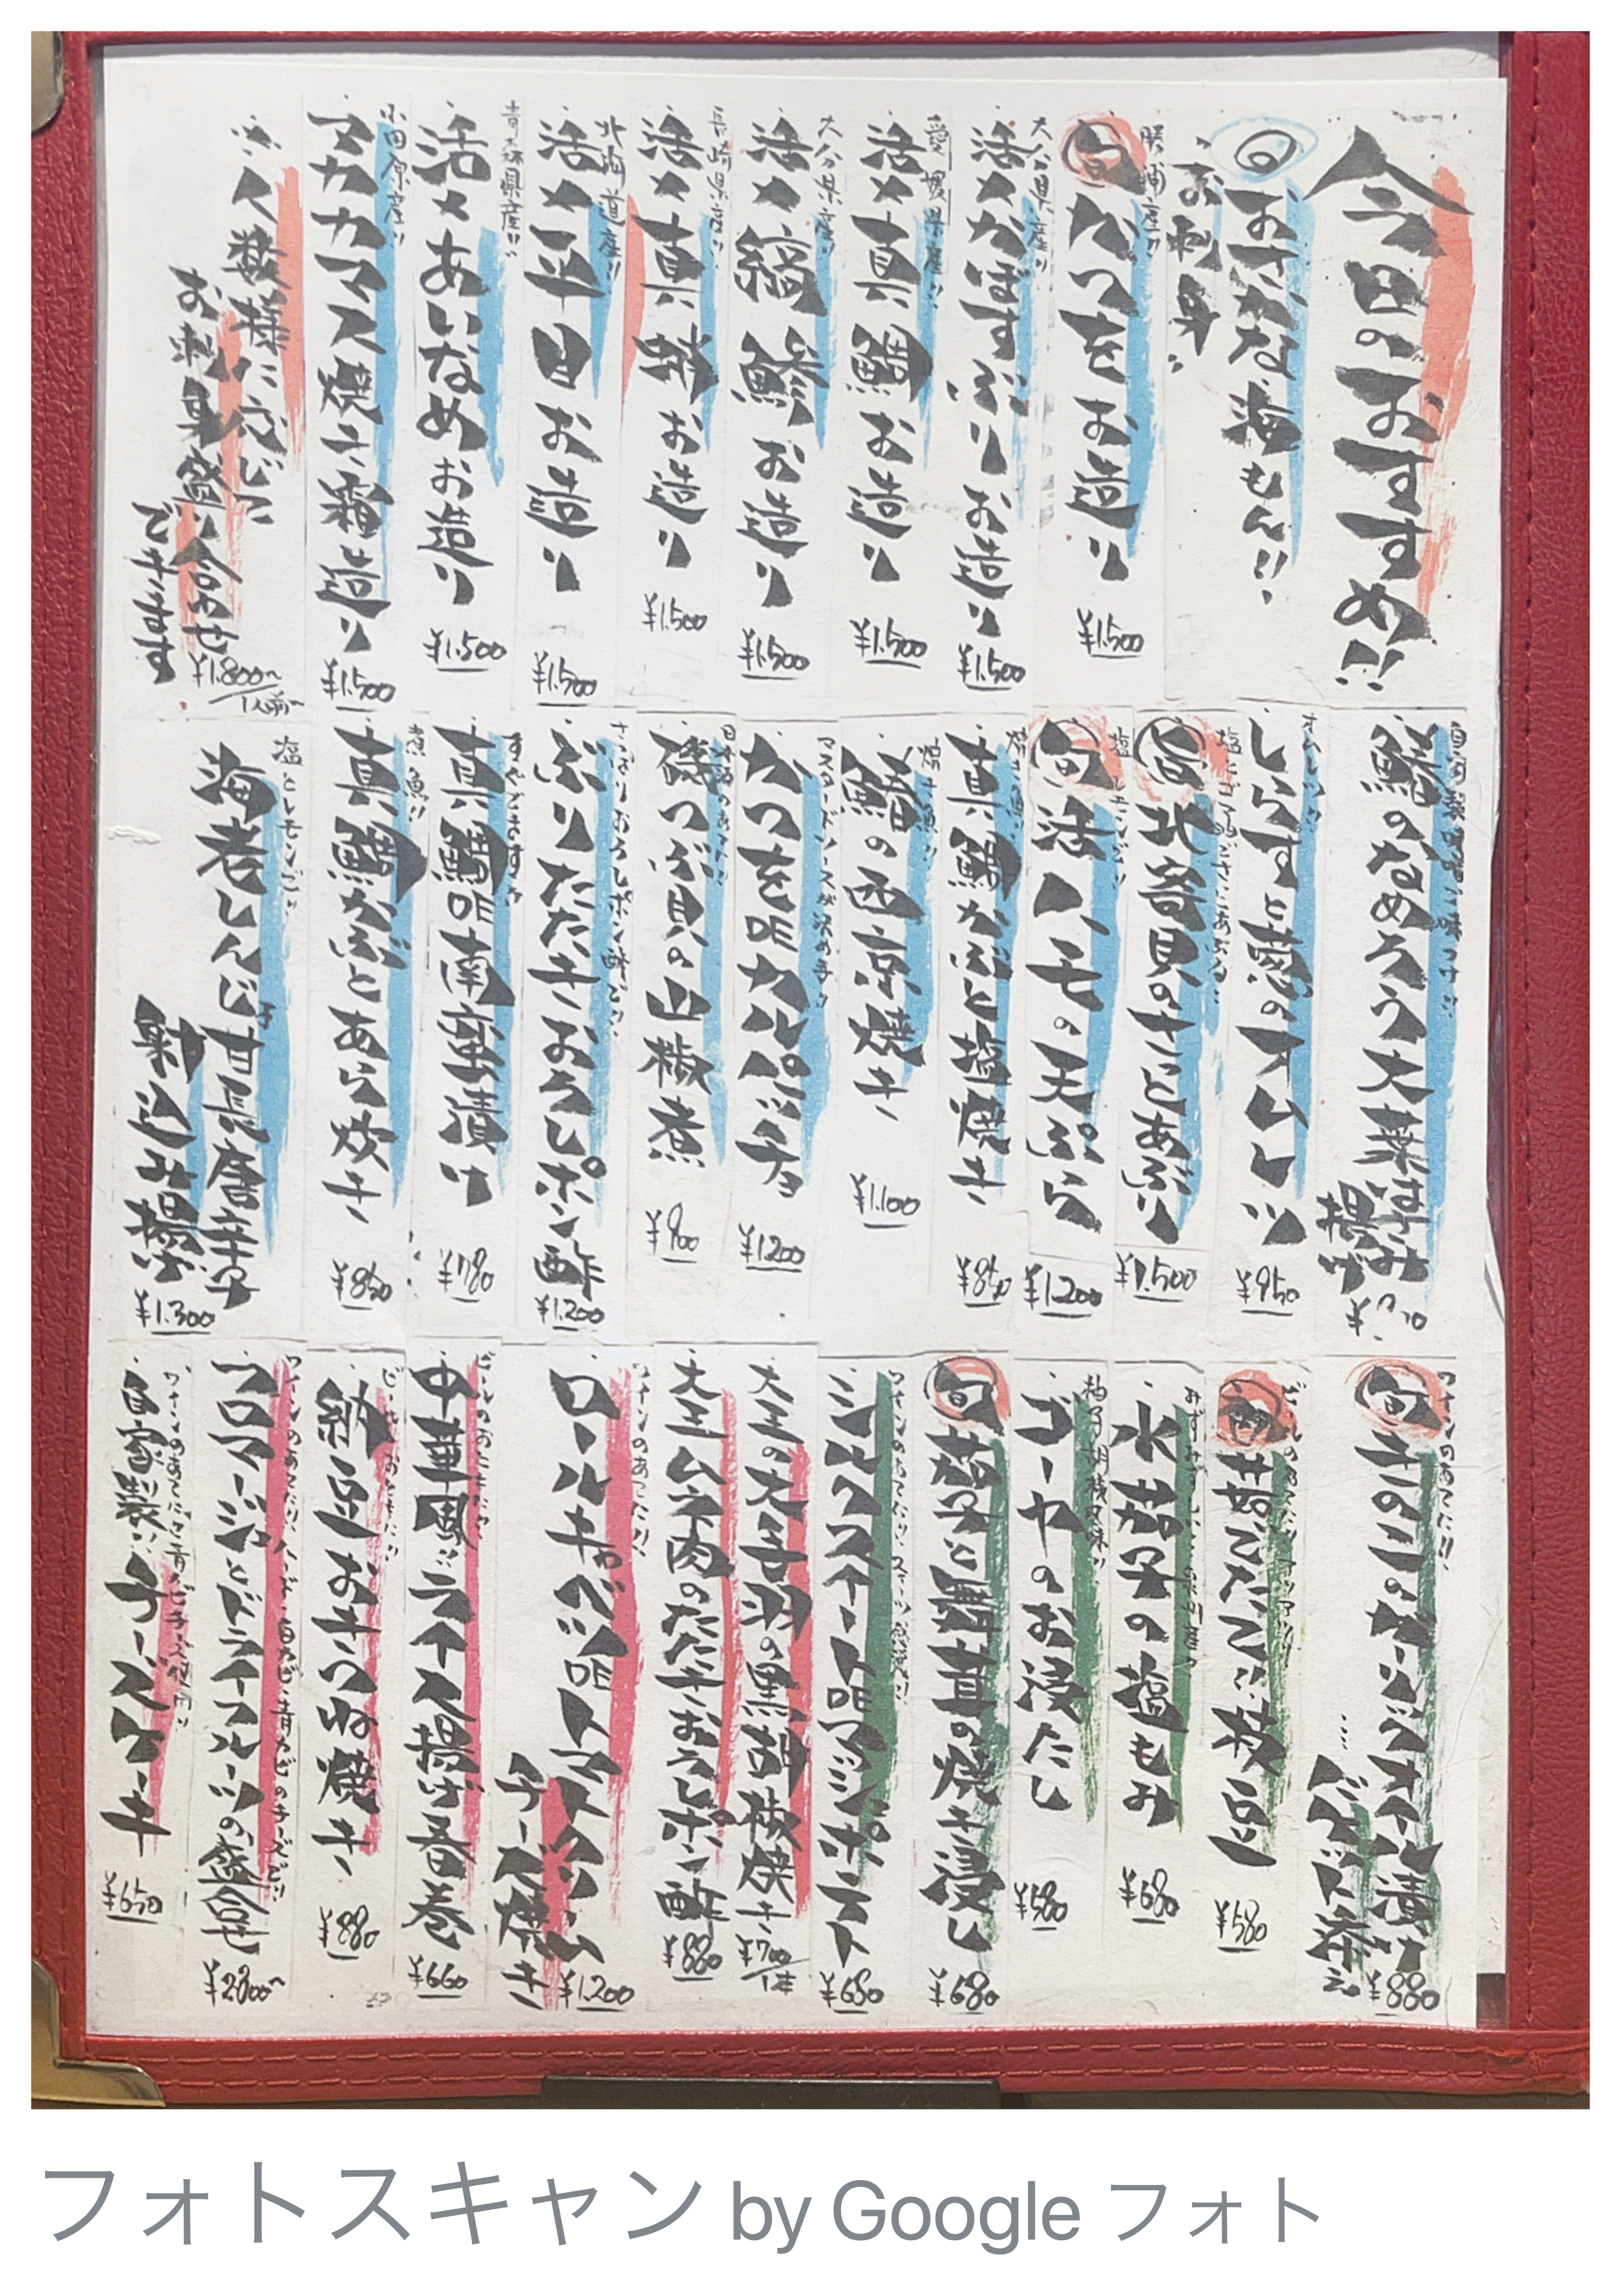 今日のおすすめ!!
おさかな海もん!!
お刺身
勝浦産!!
旬かつをお造り
¥1.500
大分県産!!
活〆かぼすぶりお造り
¥1.500
愛媛県産!!
活〆真鯛お造り
¥1.500
大分県産!!
活〆縞鯵お造り
¥1.500
長崎県産!!
活〆真蛸お造り
¥1.500
北海道産!!
活〆平目お造り
¥1.500
青森県産!!
活〆あいなめお造り
¥1.500
小田原産!!
マカカマス焼き霜造り
¥1.500
人数様に応じて
お刺身盛り合わせ
できます
¥1.800~/1人前~
自家製味噌で味つけ!!
鯵のなめろう大葉はさみ
揚げ
オムレツ!!
しらすと葱のオムレツ
¥950
北寄貝のさっとあぶり
¥1.500
塩とレモンで!!
旬活ハモの天ぷら
¥1.200
焼き魚!!
真鯛かぶと塩焼き
¥850
焼き魚!!
鰆の西京焼き
¥1.100
マスタードソースが決め手!!
かつをDEカルパッチョ
¥1200
日本酒のあてに!!
磯つぶ貝の山椒煮
¥900
さっぱりおろしポン酢で!!
ぶりたたきおろしポン酢
¥1.200
すぐでますよ
真鯛DE南蛮漬け
¥780
煮魚!!
真鯛かぶとあら炊き
¥850
塩とレモンで!!
海老しんじょ甘長唐辛子
射込み揚げ
¥1.300
ワインのあてに!!
旬きのこのガーリックオイル漬け
バケット添え
¥880
茹でたて!!枝豆
¥580
水茄子の塩もみ
¥680
柚子胡椒風味!!
ゴーヤのお浸たし
¥580
旬茄子と舞茸の焼き浸し
¥680
ワインのあてに!!スイーツ感覚!!
シルクスイートDEマッシュポテト
¥680
大王の大手羽の黒胡椒焼き
¥700/1本
大王ムネ肉のたたきおろしポン酢
¥880
ワインのあてに!!
ロールキャベツDEトマトクリーム
チーズ焼き
¥1.200
ビールのおともに!!
中華風!!ライス揚げ春巻
¥660
ビールのおともに!!
納豆おきつね焼き
¥880
ワインのあてに!!ハード・白カビ・青カビのチーズで!!
フロマージュとドライフルーツの盛合せ
¥2800~
自家製!!チーズケーキ
¥650
フォトスキャン by Google フォト